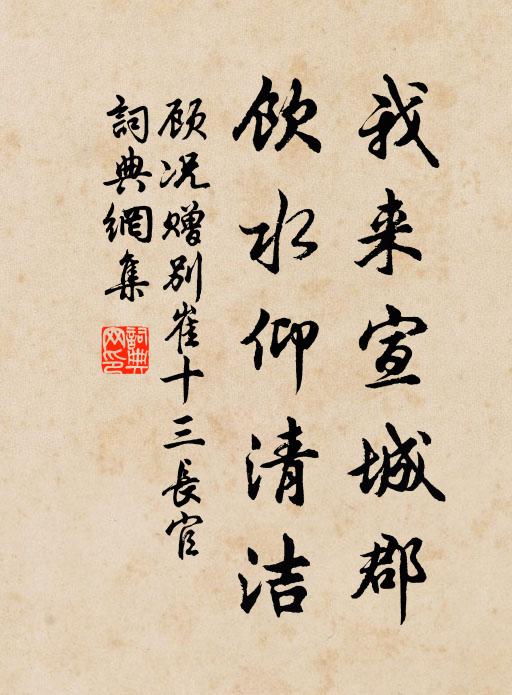 我来宣城郡
饮水仰清洁
顾况赠别崔十三長官
詞典網集
詞典网印